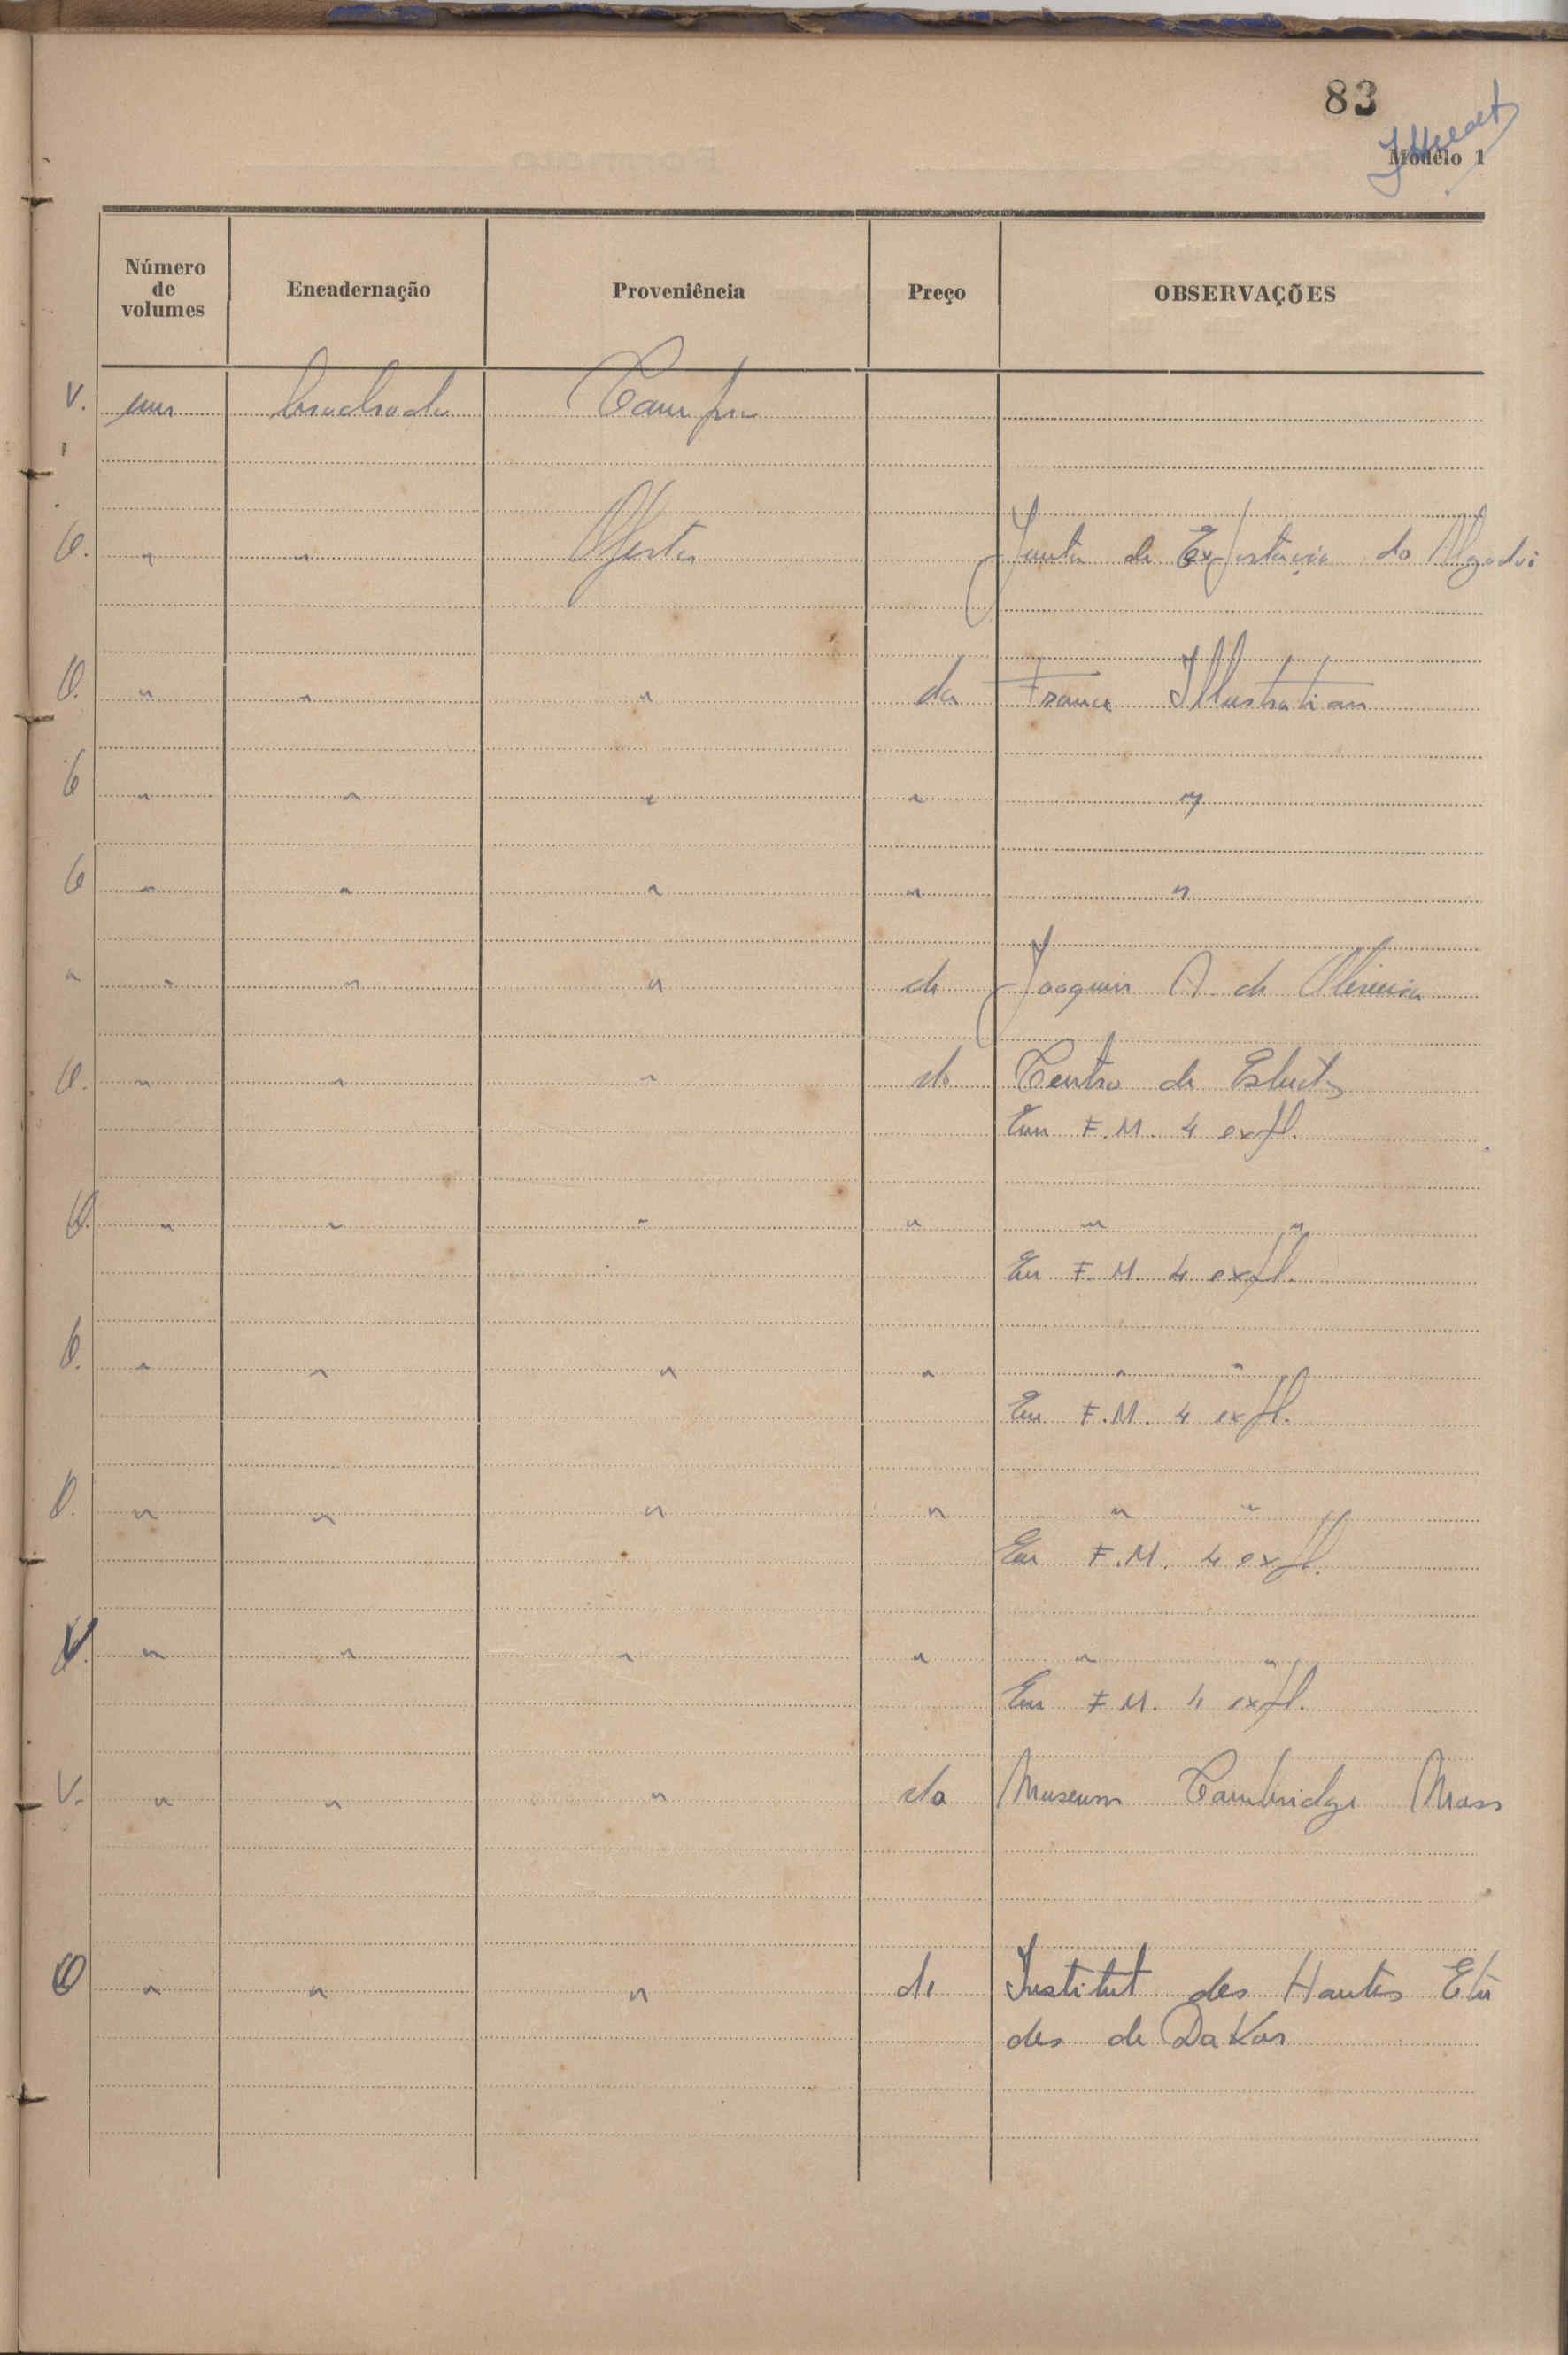 83
Modêlo 1
Número de volumes Encadernação Proveniência Preço OBSERVAÇÕES
V. um brochado Compra
O. " " Oferta Junta de Exportação do Algodão
O. " " " da France Illustration
O " " " " "
O " " " " "
" " " " de Joaquim A. de Oliveira
O. " " " do Centro de Estudos
Em F.M. 4 expl.
O. " " " " " "
Em F.M. 4 expl.
O. " " " " " "
Em F.M. 4 expl.
O. " " " " " "
Em F.M. 4 expl.
V. " " " " " "
Em F.M. 4 expl.
V. " " " do Museum Cambridge Mass
O " " " de Institut des Hautes Etu
des de Dakar